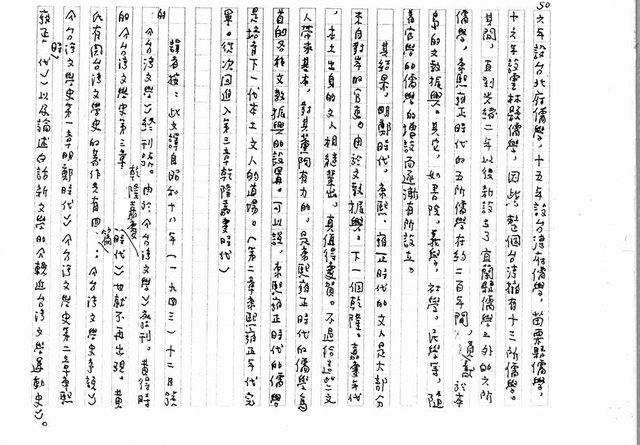 50
六年設台北府儒學，十五年設台灣府儒學，苗栗縣儒學，
十六年設雲林縣儒學，因此，整個台灣擁有十三所儒學。
其間，直到光緒二年以後新設立了宜蘭縣儒學之外的六所
儒學，康熙雍正時代的五所儒學在約二百年間，貢獻於本
島的文教振興。其它，如書院，義學，社學，民學等，隨
著官學的儒學的增設而逐漸有所設立。
其結果，明鄭時代，康熙、雍正時代的文人是大部分
來自對岸的官吏。由於文教振興，下一個乾隆。嘉慶年代
，本土出身的文人相繼輩出，真值得慶賀。不過給這些文
人帶來基本，對其薰陶有力的，是康熙雍正時代的儒學為
首的各種文教振興的設置。可以說，康熙雍正時代的儒學
是培育下一代本土文人的道場。（第二章康熙雍正年代完
畢。從次回進入第三章乾隆嘉慶時代）
譯者按：此文譯自昭和十八年（一九四三）十二月發
的《台灣文學》終刊號。由於《台灣文學》被停刊，黃得時
的《台灣文學史第三章乾隆嘉慶時代》也就不再出現。黃
氏有關台灣文學史的著作共有四篇：《台灣文學史序說》
《台灣文學史第一章明鄭時代》《台灣文學史第二章康熙
雍正時代》以及論述白話新文學的《輓近台灣文學運動史》。